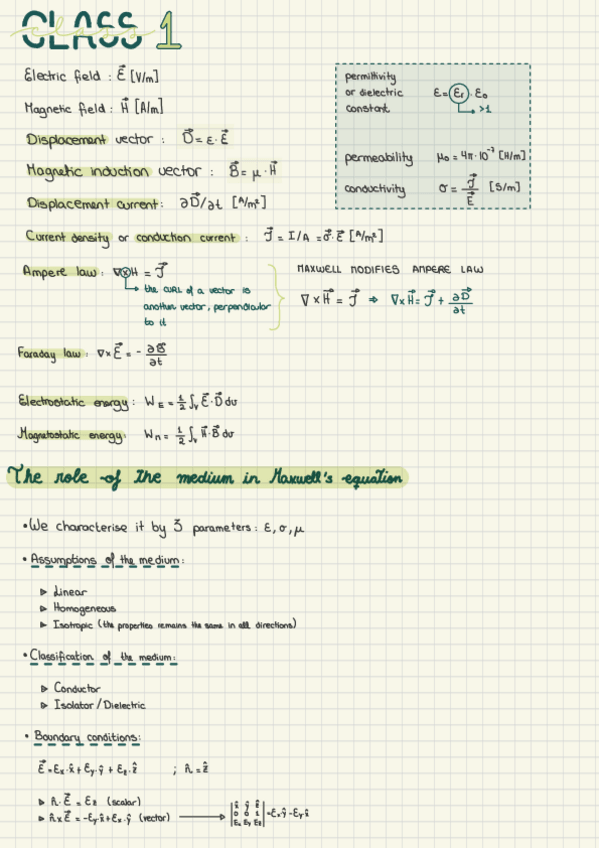 CLASS 1
class
Electric field : E⃗ [V/m]
Magnetic field : H⃗ [A/m]
Displacement vector : D⃗ = ε · E⃗
Magnetic induction vector : B⃗ = μ · H⃗
Displacement current : ∂D⃗/∂t [A/m²]
permittivity
or dielectric ε = εr · ε0
constant >1
permeability μ0 = 4π · 10⁻⁷ [H/m]
conductivity σ = J⃗/E⃗ [S/m]
Current density or conduction current : J⃗ = I/A = σ⃗ · E⃗ [A/m²]
Ampere law : ∇×H = J⃗
the CURL of a vector is
another vector, perpendicular
to it
MAXWELL MODIFIES AMPERE LAW
∇ × H⃗ = J⃗ ⇒ ∇×H⃗ = J⃗ + ∂D⃗/∂t
Faraday law : ∇× E⃗ = - ∂B⃗/∂t
Electrostatic energy : WE = 1/2 ∫v E⃗ · D⃗ dv
Magnetostatic energy : Wm = 1/2 ∫v H⃗ · B⃗ dv
The role of the medium in Maxwell's equation
• We characterise it by 3 parameters : ε, σ, μ
• Assumptions of the medium :
▹ Linear
▹ Homogeneous
▹ Isotropic (the properties remains the same in all directions)
• Classification of the medium :
▹ Conductor
▹ Isolator / Dielectric
• Boundary conditions :
E⃗ = Ex · x̂ + Ey · ŷ + Ez · ẑ ; n̂ = ẑ
▹ n̂ · E⃗ = Ez (scalar)
▹ n̂ x E⃗ = -Ey · x̂ + Ex · ŷ (vector) → |x̂ ŷ ẑ
0 0 1
Ex Ey Ez| = Ex · ŷ - Ey · x̂